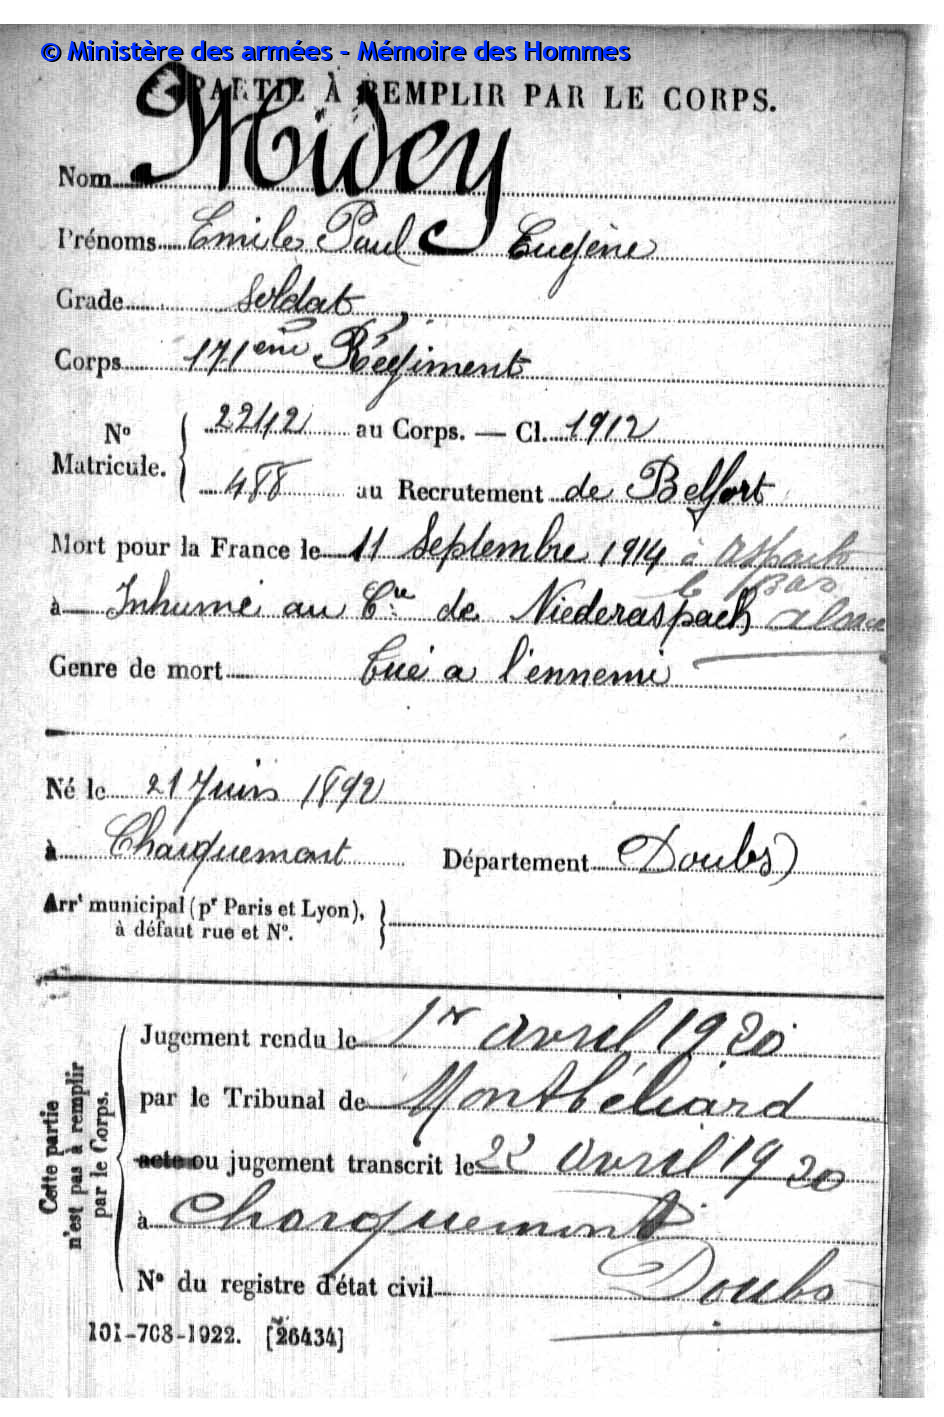 © Ministère des armées - Mémoire des Hommes
PARTIE À REMPLIR PAR LE CORPS.
Nom Midey
Prénoms Emile Paul Eugène
Grade Soldat
Corps 171ème Régiment
N° Matricule. { 2242 au Corps. — Cl. 1912
488 au Recrutement de Belfort
Mort pour la France le 11 Septembre 1914 à Aspach
le bas
à Inhumé au Cre de Niederaspach Alsace
Genre de mort tué a l'ennemi
Né le 21 Juin 1892
à Charquemont Département Doubs)
Arrt municipal (pr Paris et Lyon), }
à défaut rue et N°.
Cette partie n'est pas à remplir par le Corps.
Jugement rendu le 1er avril 1920
par le Tribunal de Montbéliard
acte ou jugement transcrit le 22 avril 1920
à Charquemont
N° du registre d'état civil Doubs
101-708-1922. [26434]